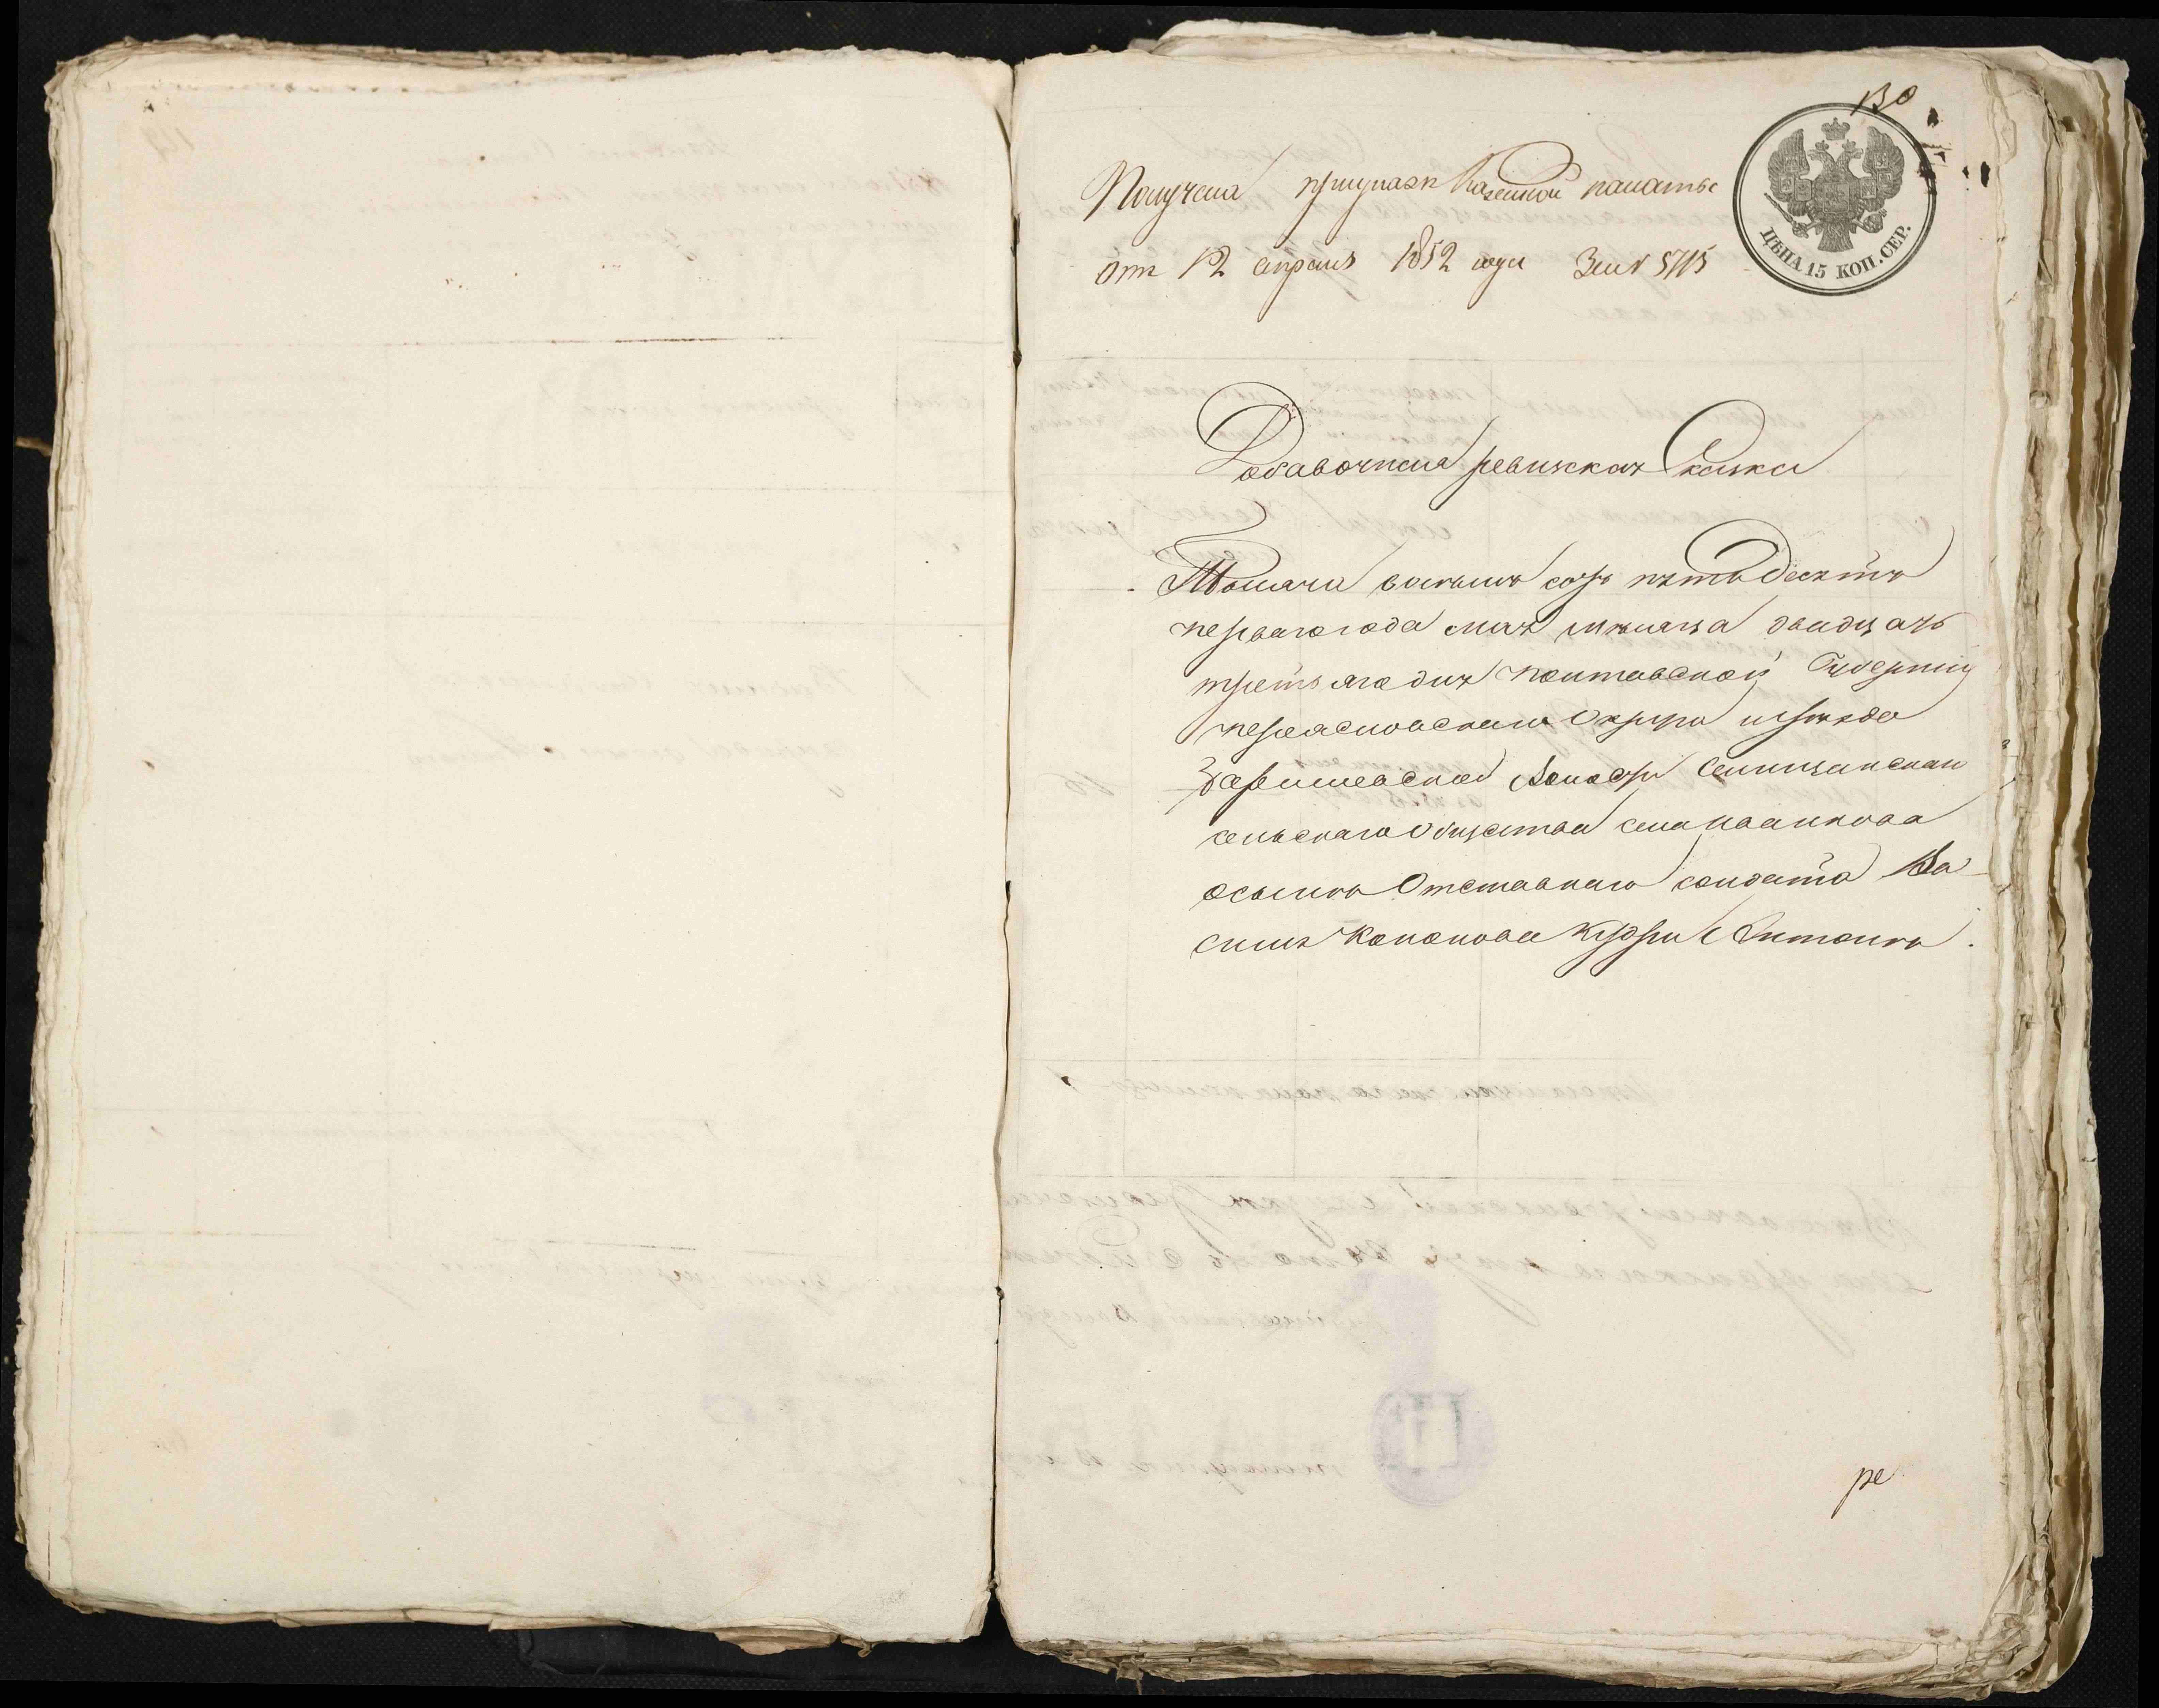 130
Получена приуказе Казенной палаты
От 12 апреля 1852 года За № 5715
ЦѢНА 15 КОП. СЕР.
Добавочная ревижская Сказка
Тысяча восемь сотъ пятьдесятъ
первагогода мая мѣсяца двадцать
третьягодня полтавской Губерніи
переясловскаго Округа иуѣзда
сельскаго Общества села иванкова
Отставнаго солдата Ва
силя Кононова Антона.
ре